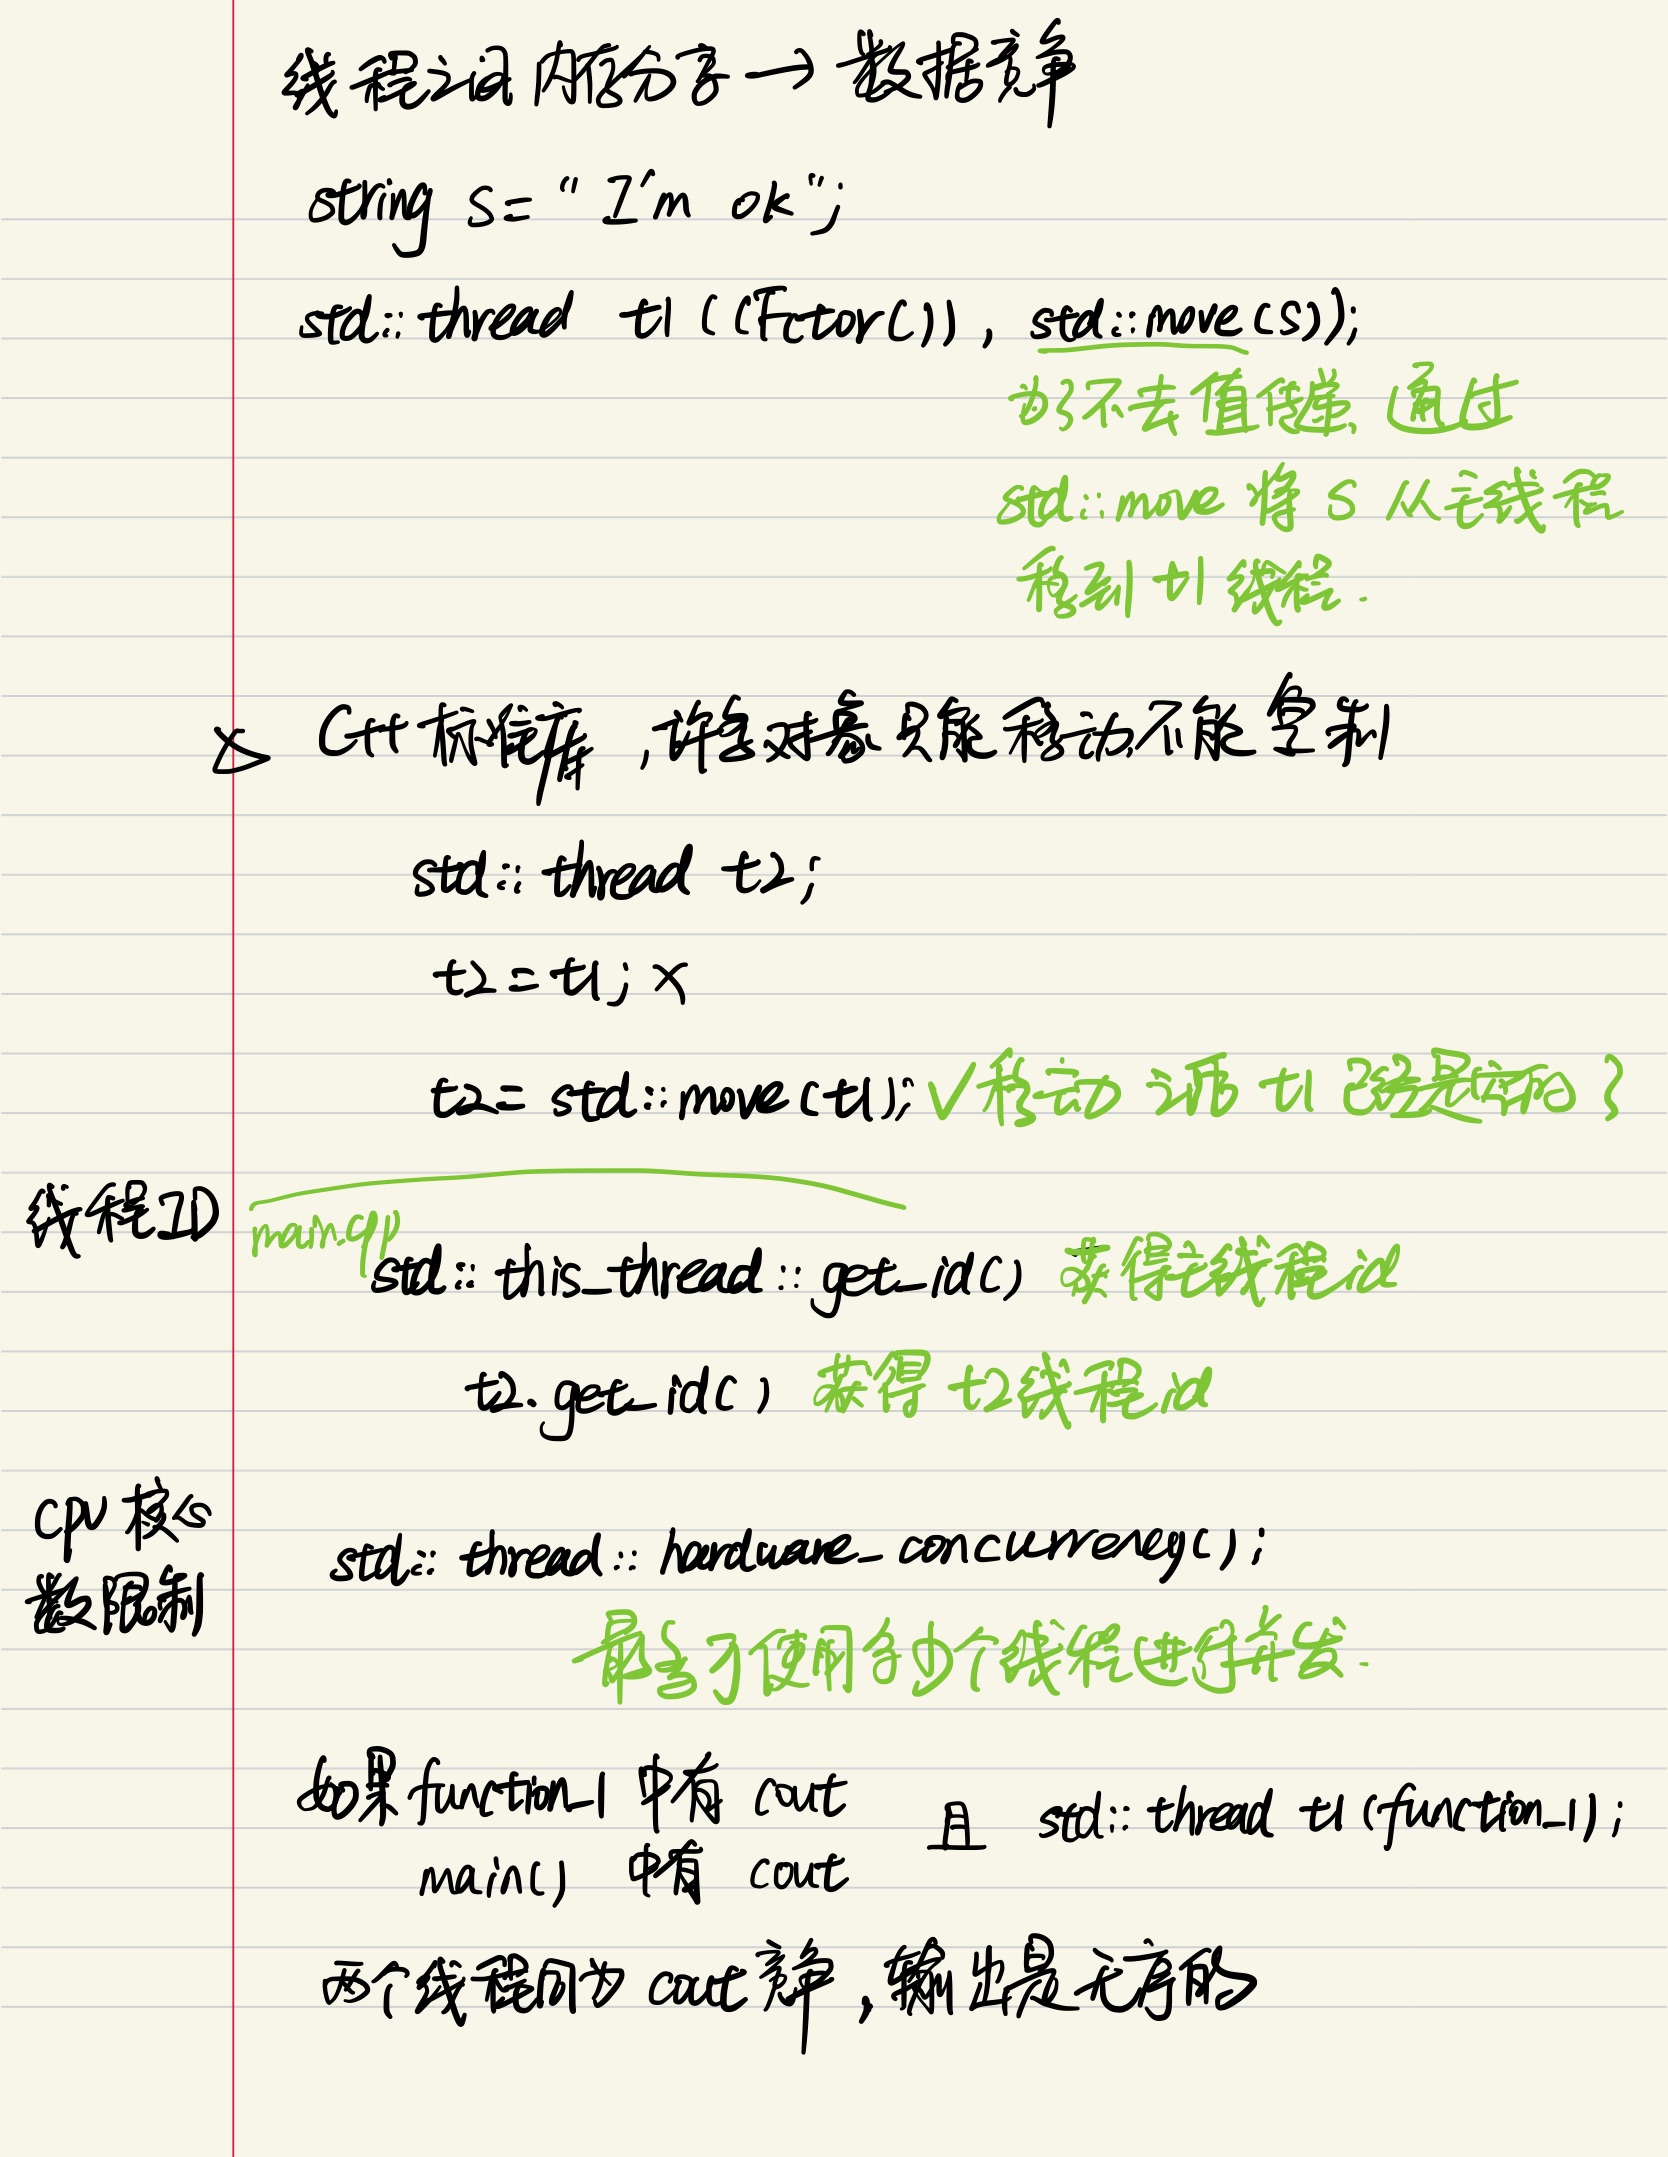 线程之间内存分享→数据竞争
string s = "I'm ok";
std::thread t1((Fctor()), std::move(s));
为了不去值传递,通过
std::move 将 s 从主线程
移到 t1 线程.
C++ 标准库,许多对象只能移动不能复制
std::thread t2;
t2 = t1; ×
t2 = std::move(t1); ✓移动之后 t1 已经是空的了
线程ID
main.cpp
std::this_thread::get_id() 获得主线程id
t2.get_id() 获得 t2线程id
cpu 核心
数限制
std::thread::hardware_concurrency();
最多可使用多少个线程进行并发.
如果 function_1 中有 cout
main() 中有 cout
且 std::thread t1(function_1);
两个线程同为 cout 竞争,输出是无序的